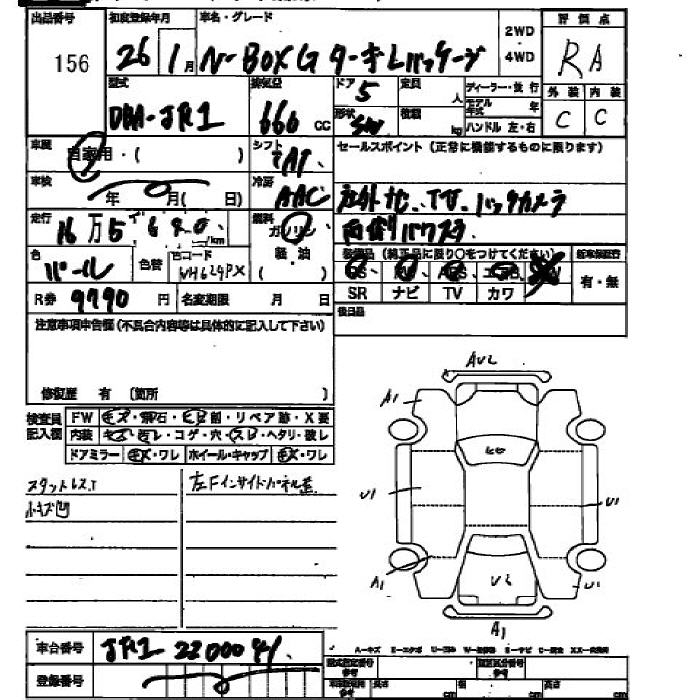 出品番号 初度登録年月 車名・グレード 2WD 4WD 評価点
156 26 1月 N-BOX G ターボLパッケージ RA
型式 排気量 ドア 定員 ディーラー・並行 外装 内装
DBA-JF1 660 cc 5 人 モデル年式 年 C C
形状 5W 積載 kg ハンドル 左・右
車歴 自家用・( ) シフト AT セールスポイント (正常に機能するものに限ります)
車検 年 月( 日) 冷房 AAC 社外ナビ、TV、バックカメラ
走行 16万5 km 燃料 ガソリン 両側パワスラ
色 パール 色替 色コード NH624PX 軽・油 ( ) 装備品 (純正品に限り○をつけてください)
有・無
R券 9790円 名変期限 月 日 SR ナビ TV カワ
注意事項申告欄 (不具合内容等は具体的に記入して下さい) 後日品
修復歴 有 (箇所 )
検査員記入欄 FW キズ・飛石・ヒビ・割・リペア跡・X要
内装 キズ・汚レ・コゲ・穴・スレ・ヘタリ・破レ
ドアミラー キズ・ワレ ホイール・キャップ キズ・ワレ
スタットレス 左Fインサイドパネル歪
小キズ凹
AU2
A1
U1
U1
A1
U2
U1
A1
車台番号 JF1
登録番号
A-キズ
長さ cm 幅 cm 高さ cm